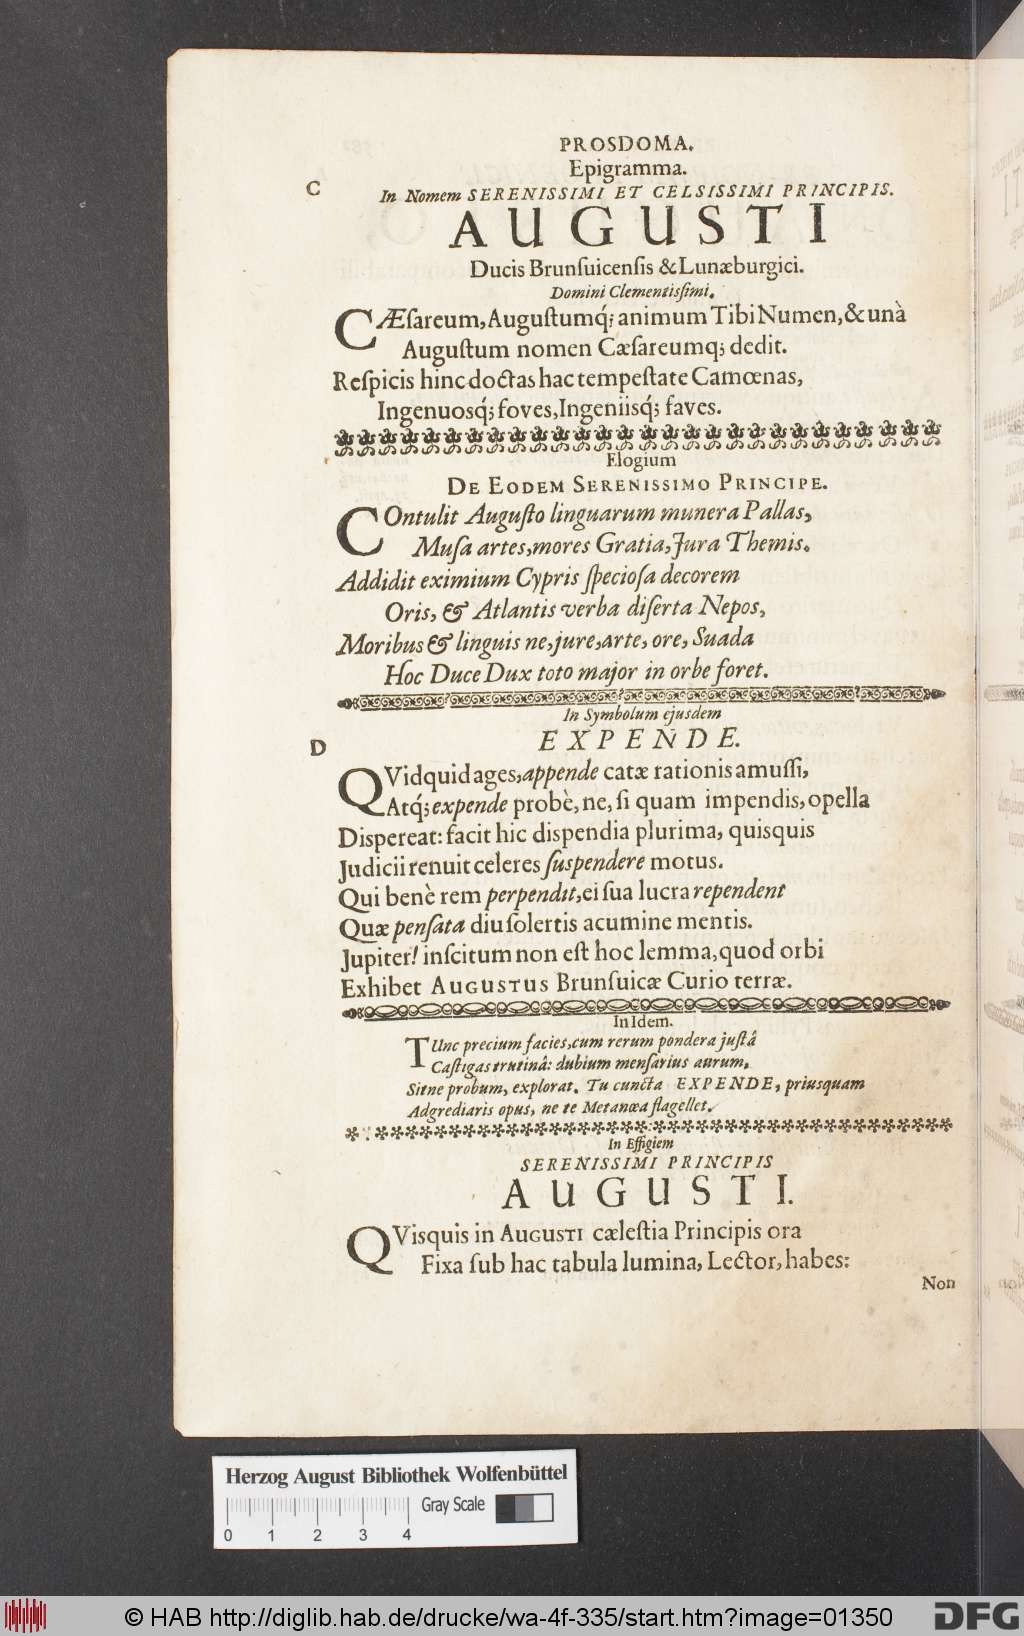 PROSDOMA.
Epigramma.
C
In Nomem SERENISSIMI ET CELSISSIMI PRINCIPIS.
AUGUSTI
Ducis Brunſuicenſis & Lunæburgici.
Domini Clementiſſimi.
CÆſareum, Auguſtumq́; animum Tibi Numen, & unà
Auguſtum nomen Cæſareumq; dedit.
Reſpicis hinc doctas hac tempeſtate Camœnas,
Ingenuosq́; foves, Ingeniisq́; faves.
Elogium
DE EODEM SERENISSIMO PRINCIPE.
COntulit Auguſto linguarum munera Pallas,
Muſa artes, mores Gratia, Jura Themis.
Addidit eximium Cypris ſpecioſa decorem
Oris, & Atlantis verba diſerta Nepos,
Moribus & linguis ne, jure, arte, ore, Suada
Hoc Duce Dux toto major in orbe foret.
In Symbolum ejusdem
D
EXPENDE.
QVidquid ages, appende catæ rationis amuſſi,
Atq́; expende probè, ne, ſi quam impendis, opella
Dispereat: facit hic dispendia plurima, quisquis
Judicii renuit celeres ſuspendere motus.
Qui benè rem perpendit, ei ſua lucra rependent
Quæ penſata diu ſolertis acumine mentis.
Jupiter! inſcitum non eſt hoc lemma, quod orbi
Exhibet AUGUSTUS Brunſuicæ Curio terræ.
In Idem.
TUnc precium facies, cum rerum pondera juſtâ
Caſtigas trutinâ: dubium menſarius aurum,
Sitne probum, explorat. Tu cuncta EXPENDE, priusquam
Adgrediaris opus, ne te Metanœa flagellet.
In Effigiem
SERENISSIMI PRINCIPIS
AUGUSTI.
QVisquis in AUGUSTI cæleſtia Principis ora
Fixa ſub hac tabula lumina, Lector, habes:
Non
Herzog August Bibliothek Wolfenbüttel
Gray Scale
0 1 2 3 4
© HAB http://diglib.hab.de/drucke/wa-4f-335/start.htm?image=01350
DFG